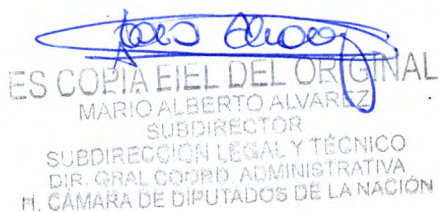 ES COPIA FIEL DEL ORIGINAL
MARIO ALBERTO ALVAREZ
SUBDIRECTOR
SUBDIRECCIÓN LEGAL Y TÉCNICO
DIR. GRAL COORD. ADMINISTRATIVA
H. CÁMARA DE DIPUTADOS DE LA NACIÓN